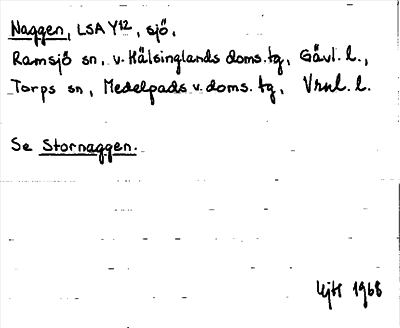 Naggen, LSA Y12, sjö.
Ramsjö sn, v. Hälsinglands doms.tg, Gävl. l.,
Torps sn, Medelpads v. doms. tg, Vrnl. l.
Se Stornaggen.
1968